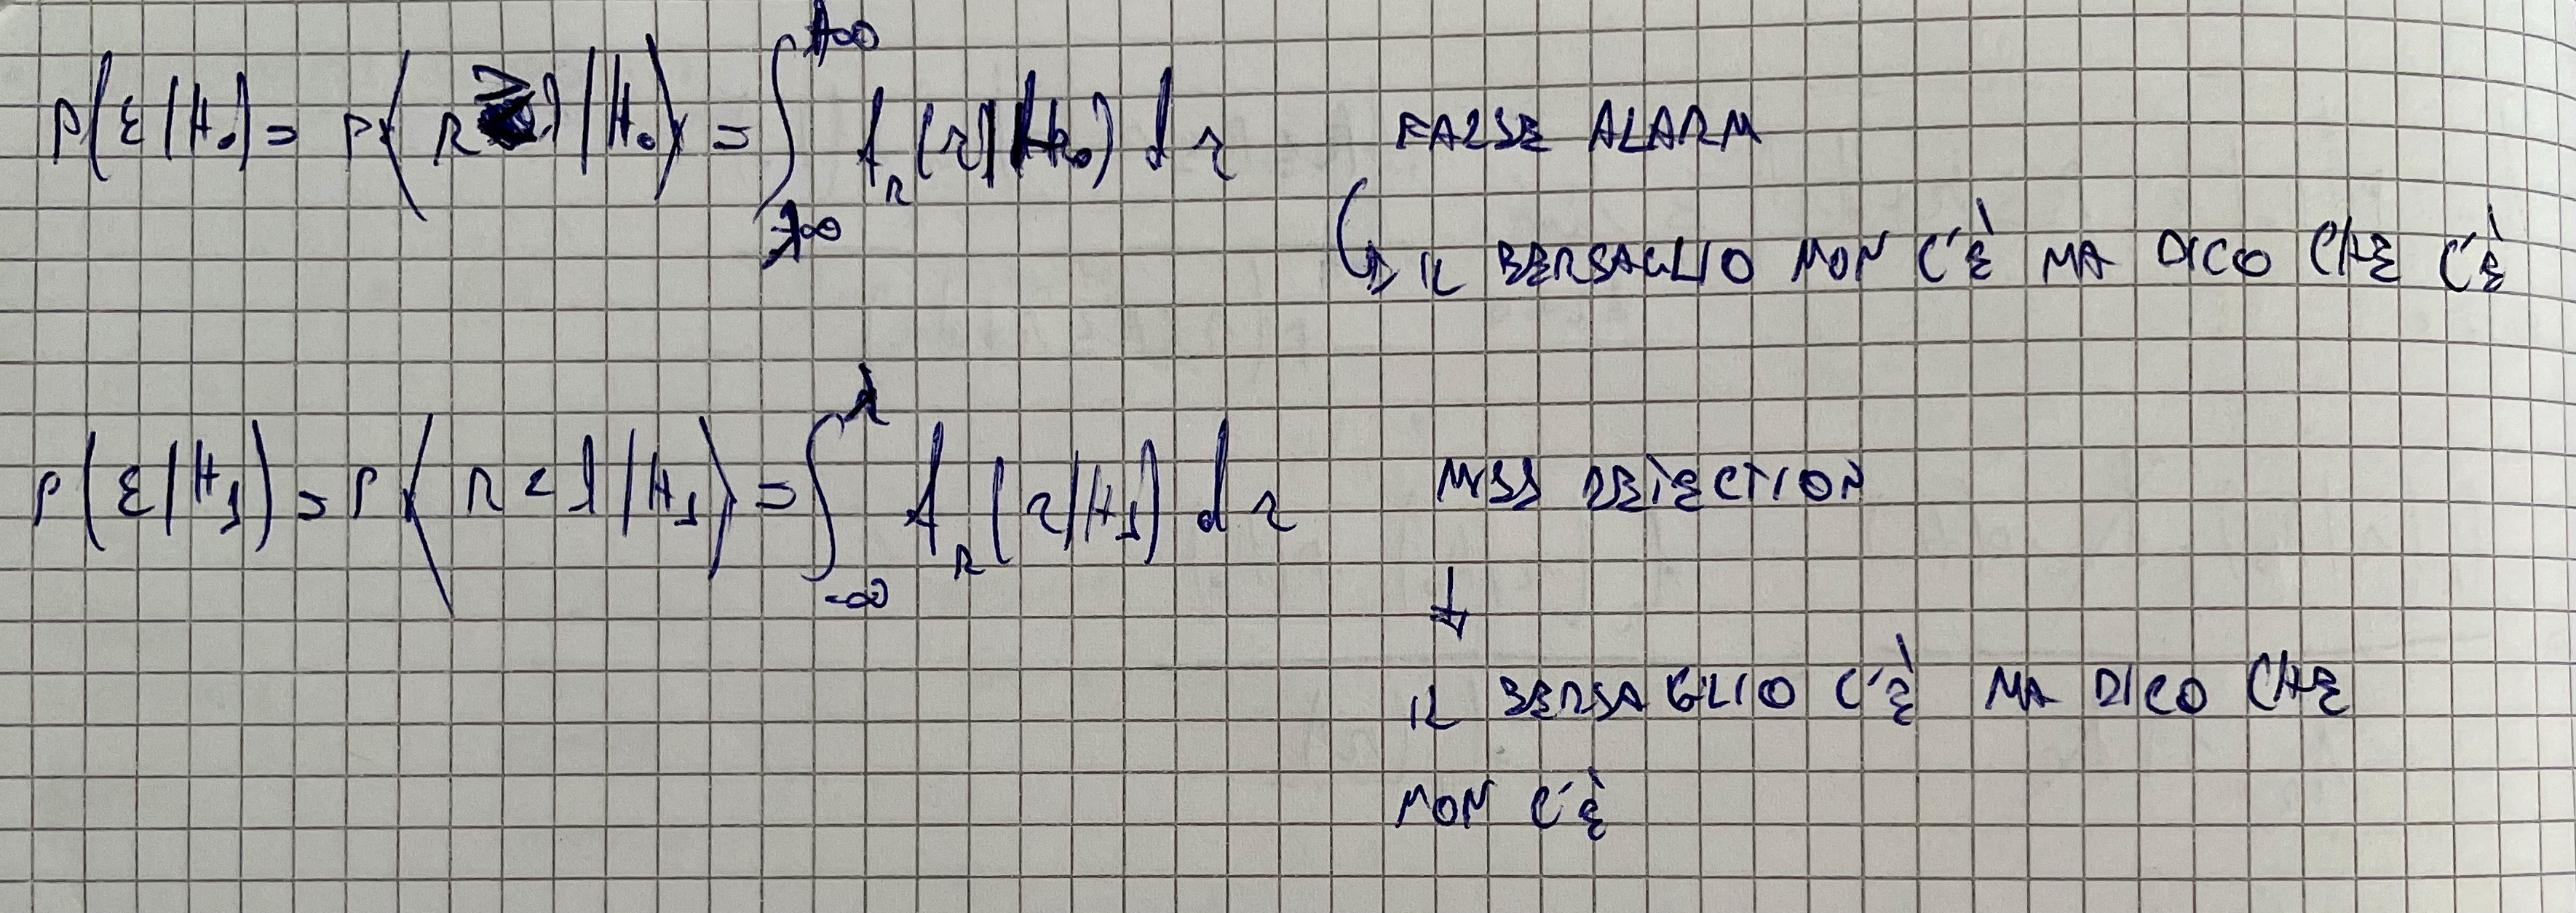 P(ε/H₀) = P{R ≥ λ/H₀} = ∫ +∞ f_R(r/H₀) dr FALSE ALARM
↳ IL BERSAGLIO NON C'È MA DICO CHE C'È
P(ε/H₁) = P{R < λ/H₁} = ∫_{-∞}^{λ} f_R(r/H₁) dr MISS DETECTION
↓
IL BERSAGLIO C'È MA DICO CHE
NON C'È